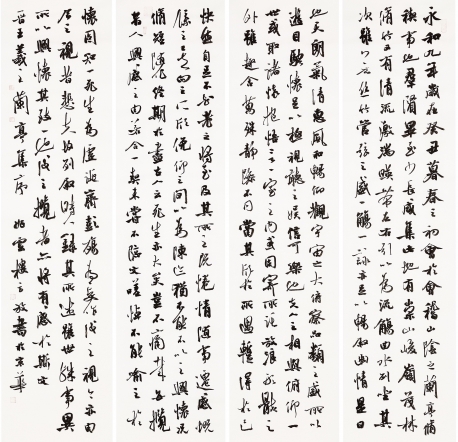 永和九年歲在癸丑暮春之初會於會稽山陰之蘭亭脩
禊事也群賢畢至少長咸集此地有崇山峻嶺茂林
脩竹又有清流激湍暎帶左右引以為流觴曲水列坐其
次雖無絲竹管弦之盛一觴一詠亦足以暢敘幽情是日
也天朗氣清惠風和暢仰觀宇宙之大俯察品類之盛所以
遊目騁懷足以極視聽之娛信可樂也夫人之相與俯仰一
世或取諸懷抱悟言一室之內或因寄所託放浪形骸之
外雖趣舍萬殊靜躁不同當其欣於所遇暫得於己
快然自足不知老之將至及其所之既倦情隨事遷感慨
係之矣向之所欣俛仰之間以為陳迹猶不能不以之興懷況
脩短隨化終期於盡古人云死生亦大矣豈不痛哉每攬
昔人興感之由若合一契未嘗不臨文嗟悼不能喻之於
懷固知一死生為虛誕齊彭殤為妄作後之視今亦由
今之視昔悲夫故列敘時人錄其所述雖世殊事異
所以興懷其致一也後之攬者亦將有感於斯文
晉王羲之蘭亭集序 雲樓主 書於京華